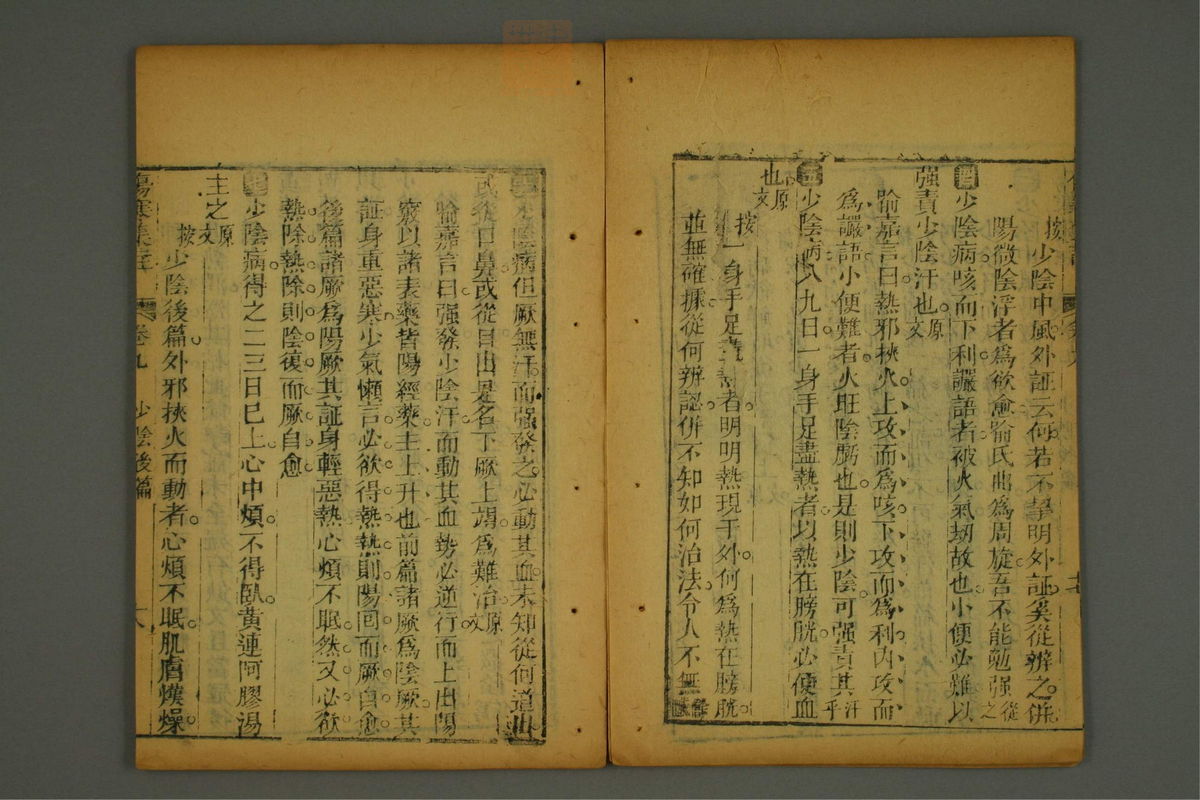 按少陰中風外証云何若不掣明外証奚從辨之併
陽微陰浮者爲欲愈喻氏曲爲周旋吾不能勉强從之
少陰病咳而下利讝語者被火氣刼故也小便必難以
强責少陰汗也原文
喻嘉言曰熱邪挾火上攻而爲咳下攻而爲利內攻而
爲讝語小便難者火旺陰虧也是則少陰可强責其汗乎
少陰病八九日一身手足盡熱者以熱在膀胱必便血
也原文
按一身手足盡熱者明明熱現于外何爲熱在膀胱
並無確據從何辨認併不知如何治法令人不無
少陰病但厥無汗而强發之必動其血未知從何道出
或從口鼻或從目出是名下厥上竭爲難治原文
喻嘉言曰强發少陰汗而動其血勢必逆行而上出陽
竅以諸表藥皆陽經藥主上升也前篇諸厥爲陰厥其
証身重惡寒少氣懶言必欲得熱熱則陽回而厥自愈
後篇諸厥爲陽厥其証身輕惡熱心煩不眠然又必欲
熱除熱除則陰復而厥自愈
少陰病得之二三日已上心中煩不得臥黃連阿膠湯
主之原文
按少陰後篇外邪挾火而動者心煩不眠肌膚熯燥
傷寒集註 卷九 少陰後篇